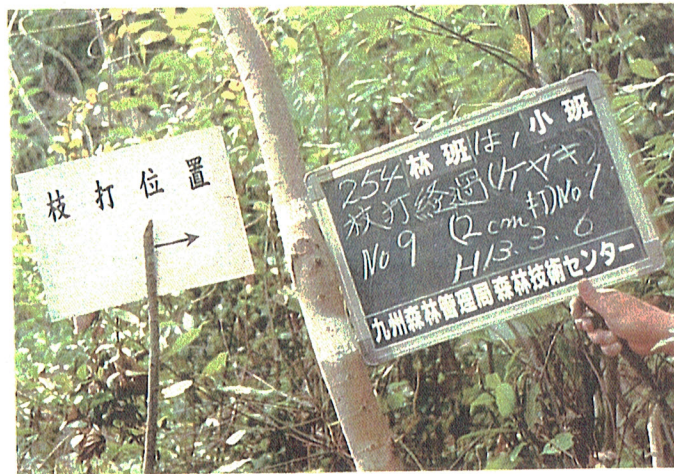 枝打位置
→
254林班は1小班
枝打経過(ケヤキ)
No9 (2cm打)No7
H13.3.6
九州森林管理局森林技術センター